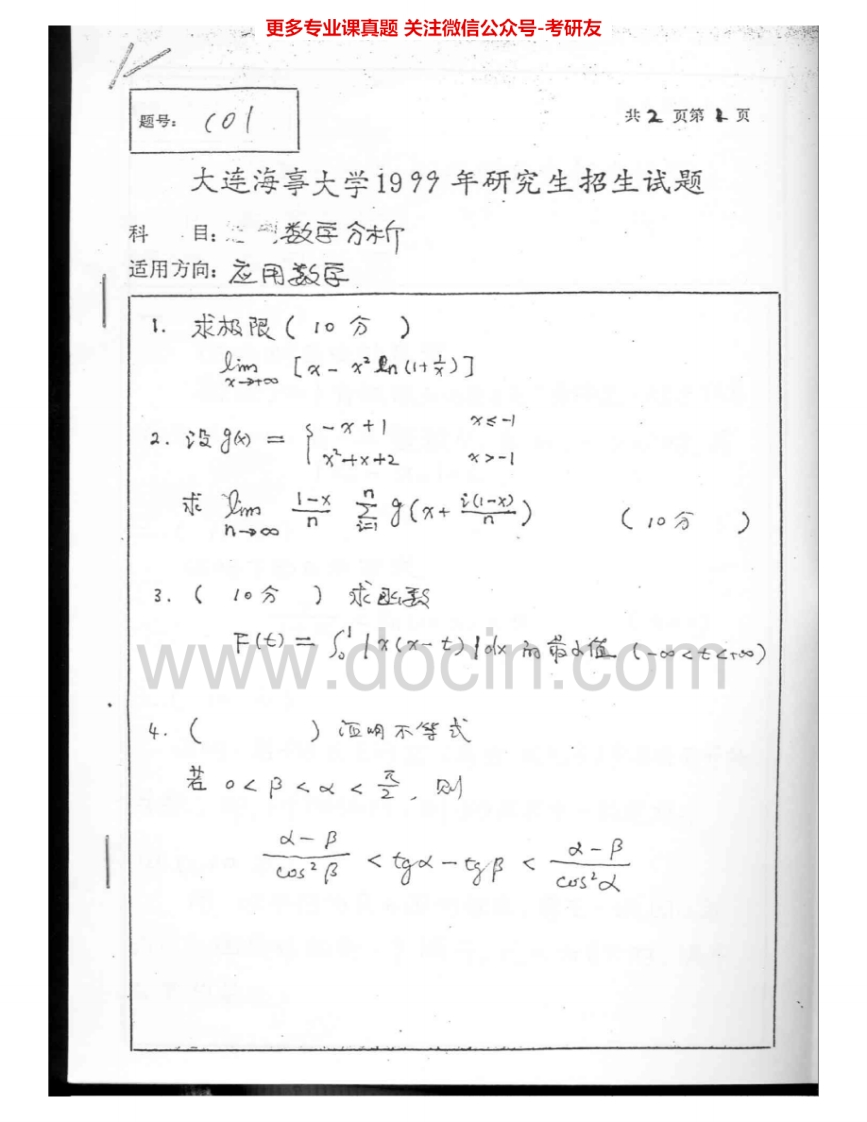 更多专业课真题 关注微信公众号-考研友
题号: 001
共 2 页第 1 页
大连海事大学1999年研究生招生试题
科 目: 数学分析
适用方向: 应用数学
1. 求极限 ( 10分 )
lim x→+∞ [x - x² ln(1+1/x)]
2. 设 g(x) = { -x+1 x≤-1
x²+x+2 x>-1
求 lim n→∞ (1-x)/n ∑ i=1 n g(x+ i(1-x)/n) ( 10分 )
3. ( 10分 ) 求函数
F(t) = ∫₀¹ |x(x-t)|dx 的最小值 (-∞<t<+∞)
www.docin.com
4. ( ) 证明不等式
若 0<β<α<π/2, 则
(α-β)/cos²β < tgα - tgβ < (α-β)/cos²α